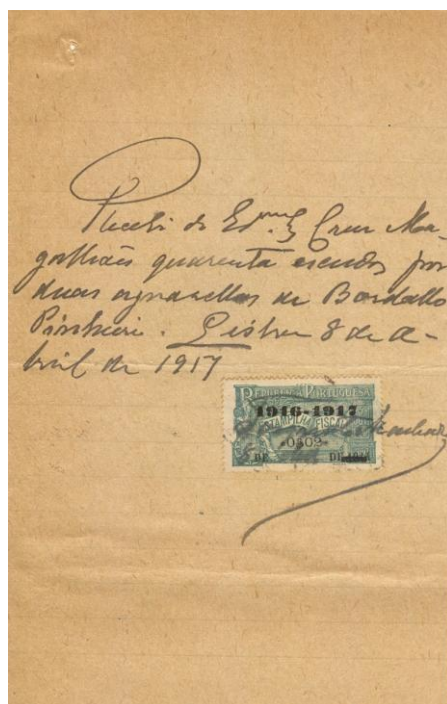 Recebi do Exmo Sr Cruz Ma-
galhães quarenta escudos por
duas aguarellas de Bordallo
Pinheiro. Lisboa 8 de a-
bril de 1917
REPUBLICA PORTUGUESA
1916-1917
ESTAMPILHA FISCAL
$02
DE DE 191